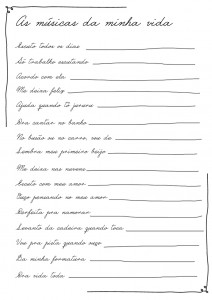 As músicas da minha vida
Escuto todos os dias
Só trabalho escutando
Acordo com ela
Me deixa feliz
Ajuda quando tô jururu
Pra cantar no banho
No busão ou no carro, vou de
Lembra meu primeiro beijo
Me deixa nas nuvens
Escuto com meu amor
Ouço pensando no meu amor
Perfeita pra namorar
Levanto da cadeira quando toca
Vou pra pista quando ouço
Da minha formatura
Pra vida toda